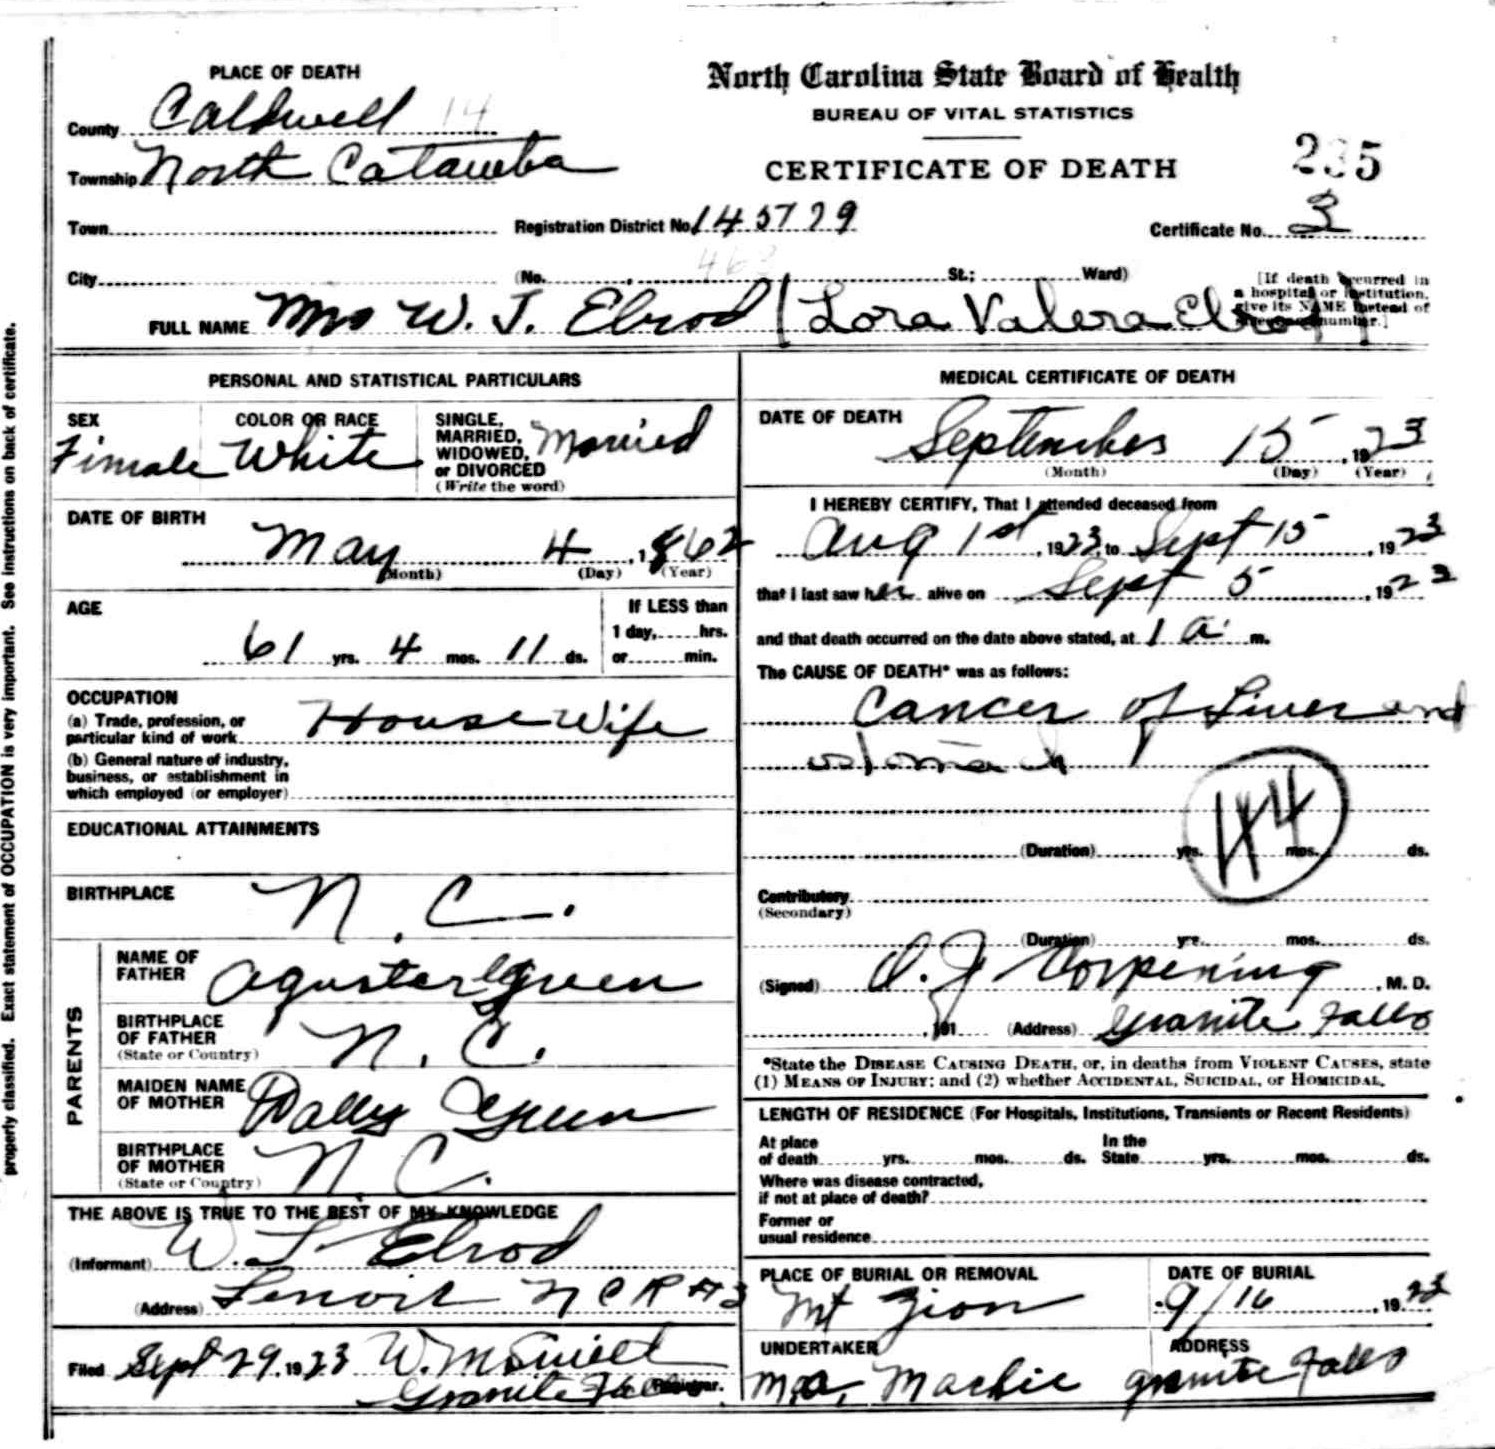 PLACE OF DEATH
North Carolina State Board of Health
BUREAU OF VITAL STATISTICS
CERTIFICATE OF DEATH
235
County Caldwell 14
Township North Catawba
Town
Registration District No. 145779
Certificate No. 3
City (No. St.; Ward)
[If death occurred in a hospital or institution, give its NAME instead of street and number.]
FULL NAME Mrs W. J. Elrod (Lora Valera Elrod)
PERSONAL AND STATISTICAL PARTICULARS
SEX Fimale
COLOR OR RACE White
SINGLE, MARRIED, WIDOWED, or DIVORCED (Write the word) Married
DATE OF BIRTH
May 4, 1862
(Month) (Day) (Year)
AGE
61 yrs. 4 mos. 11 ds.
If LESS than
1 day, hrs.
or min.
OCCUPATION
(a) Trade, profession, or
particular kind of work House Wife
(b) General nature of industry,
business, or establishment in
which employed (or employer)
EDUCATIONAL ATTAINMENTS
BIRTHPLACE N. C.
PARENTS
NAME OF FATHER Aguster Green
BIRTHPLACE OF FATHER (State or Country) N. C.
MAIDEN NAME OF MOTHER Green
BIRTHPLACE OF MOTHER (State or Country) N C.
THE ABOVE IS TRUE TO THE BEST OF MY KNOWLEDGE
(Informant) Elrod
(Address) Lenoir N C R #3
Filed Sept 29, 1923
Granite Falls Registrar.
MEDICAL CERTIFICATE OF DEATH
DATE OF DEATH
September 15, 1923
(Month) (Day) (Year)
I HEREBY CERTIFY, That I attended deceased from
Aug 1st, 1923, to Sept 15, 1923
that I last saw her alive on Sept 5, 1923
and that death occurred on the date above stated, at 1 a. m.
The CAUSE OF DEATH* was as follows:
Cancer of Liver and
stomach
44
(Duration) yrs. mos. ds.
Contributory
(Secondary)
(Duration) yrs. mos. ds.
(Signed) O. J. Corpening, M. D.
, 191 (Address) Granite Falls
*State the DISEASE CAUSING DEATH, or, in deaths from VIOLENT CAUSES, state
(1) MEANS OF INJURY; and (2) whether ACCIDENTAL, SUICIDAL, or HOMICIDAL.
LENGTH OF RESIDENCE (For Hospitals, Institutions, Transients or Recent Residents)
At place
of death yrs. mos. ds.
In the
State yrs. mos. ds.
Where was disease contracted,
if not at place of death?
Former or
usual residence
PLACE OF BURIAL OR REMOVAL
Mt Zion
DATE OF BURIAL
9/16, 1923
UNDERTAKER
Mackie
ADDRESS
Granite Falls
properly classified. Exact statement of OCCUPATION is very important. See instructions on back of certificate.